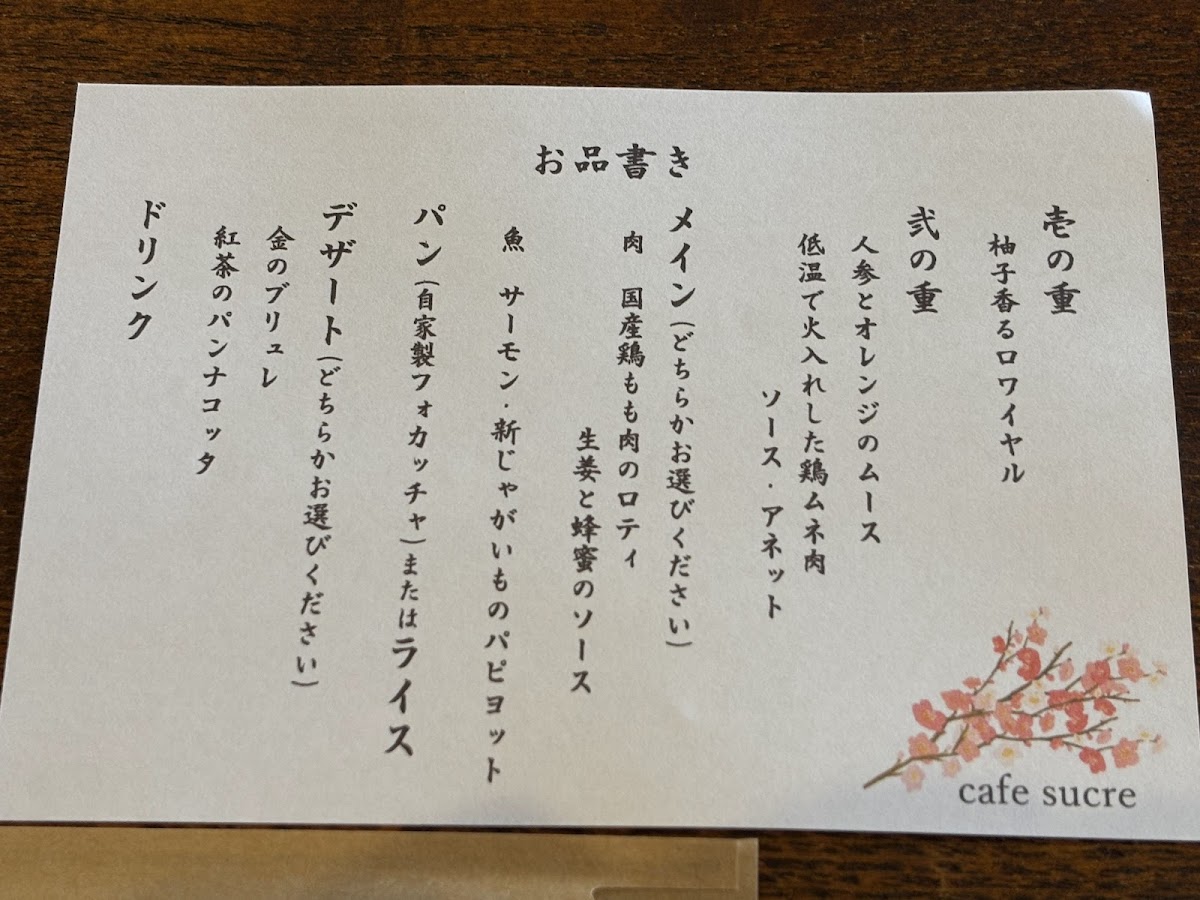 お品書き
壱の重
柚子香るロワイヤル
弐の重
人参とオレンジのムース
低温で火入れした鶏ムネ肉
ソース・アネット
メイン(どちらかお選びください)
肉 国産鶏もも肉のロティ
生姜と蜂蜜のソース
魚 サーモン・新じゃがいものパピヨット
パン(自家製フォカッチャ)またはライス
デザート(どちらかお選びください)
金のブリュレ
紅茶のパンナコッタ
ドリンク
cafe sucre